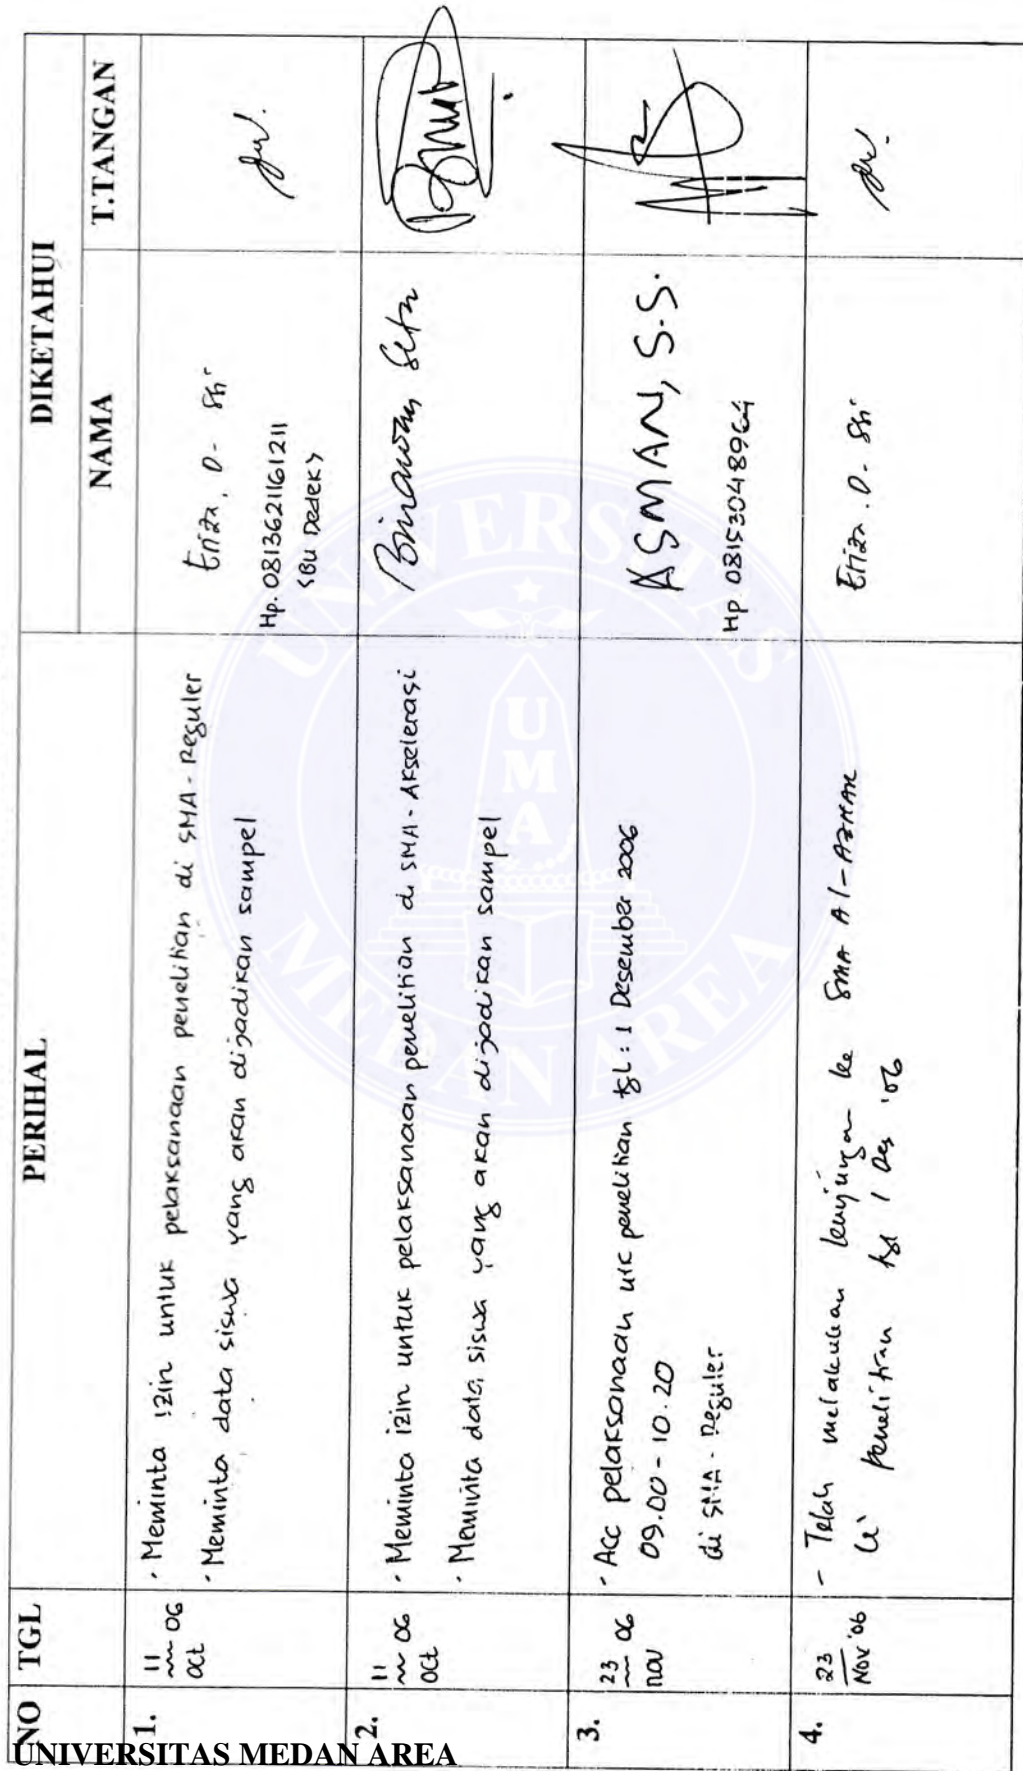 NO TGL PERIHAL DIKETAHUI
NAMA T.TANGAN
1. 11 Oct 06 · Meminta izin untuk pelaksanaan penelitian di SMA - Reguler
· Meminta data siswa yang akan dijadikan sampel
Eriza. D.
Hp. 081362116121
<Bu Dedek>
2. 11 Oct 06 · Meminta izin untuk pelaksanaan penelitian di SMA - Akselerasi
· Meminta data siswa yang akan dijadikan sampel
Binawan Setia
3. 23 nov 06 · Acc pelaksanaan utk penelitian tgl : 1 Desember 2006
09.00 - 10.20
di SMA - Reguler
ASMAN, S.S.
Hp 081530489964
4. 23 Nov '06 - Telah melakukan kunjungan ke SMA Al-Azhar
penelitian tgl 1 Des '06
Eriza. D.
UNIVERSITAS MEDAN AREA
UNIVERSITAS
UMA
MEDAN AREA